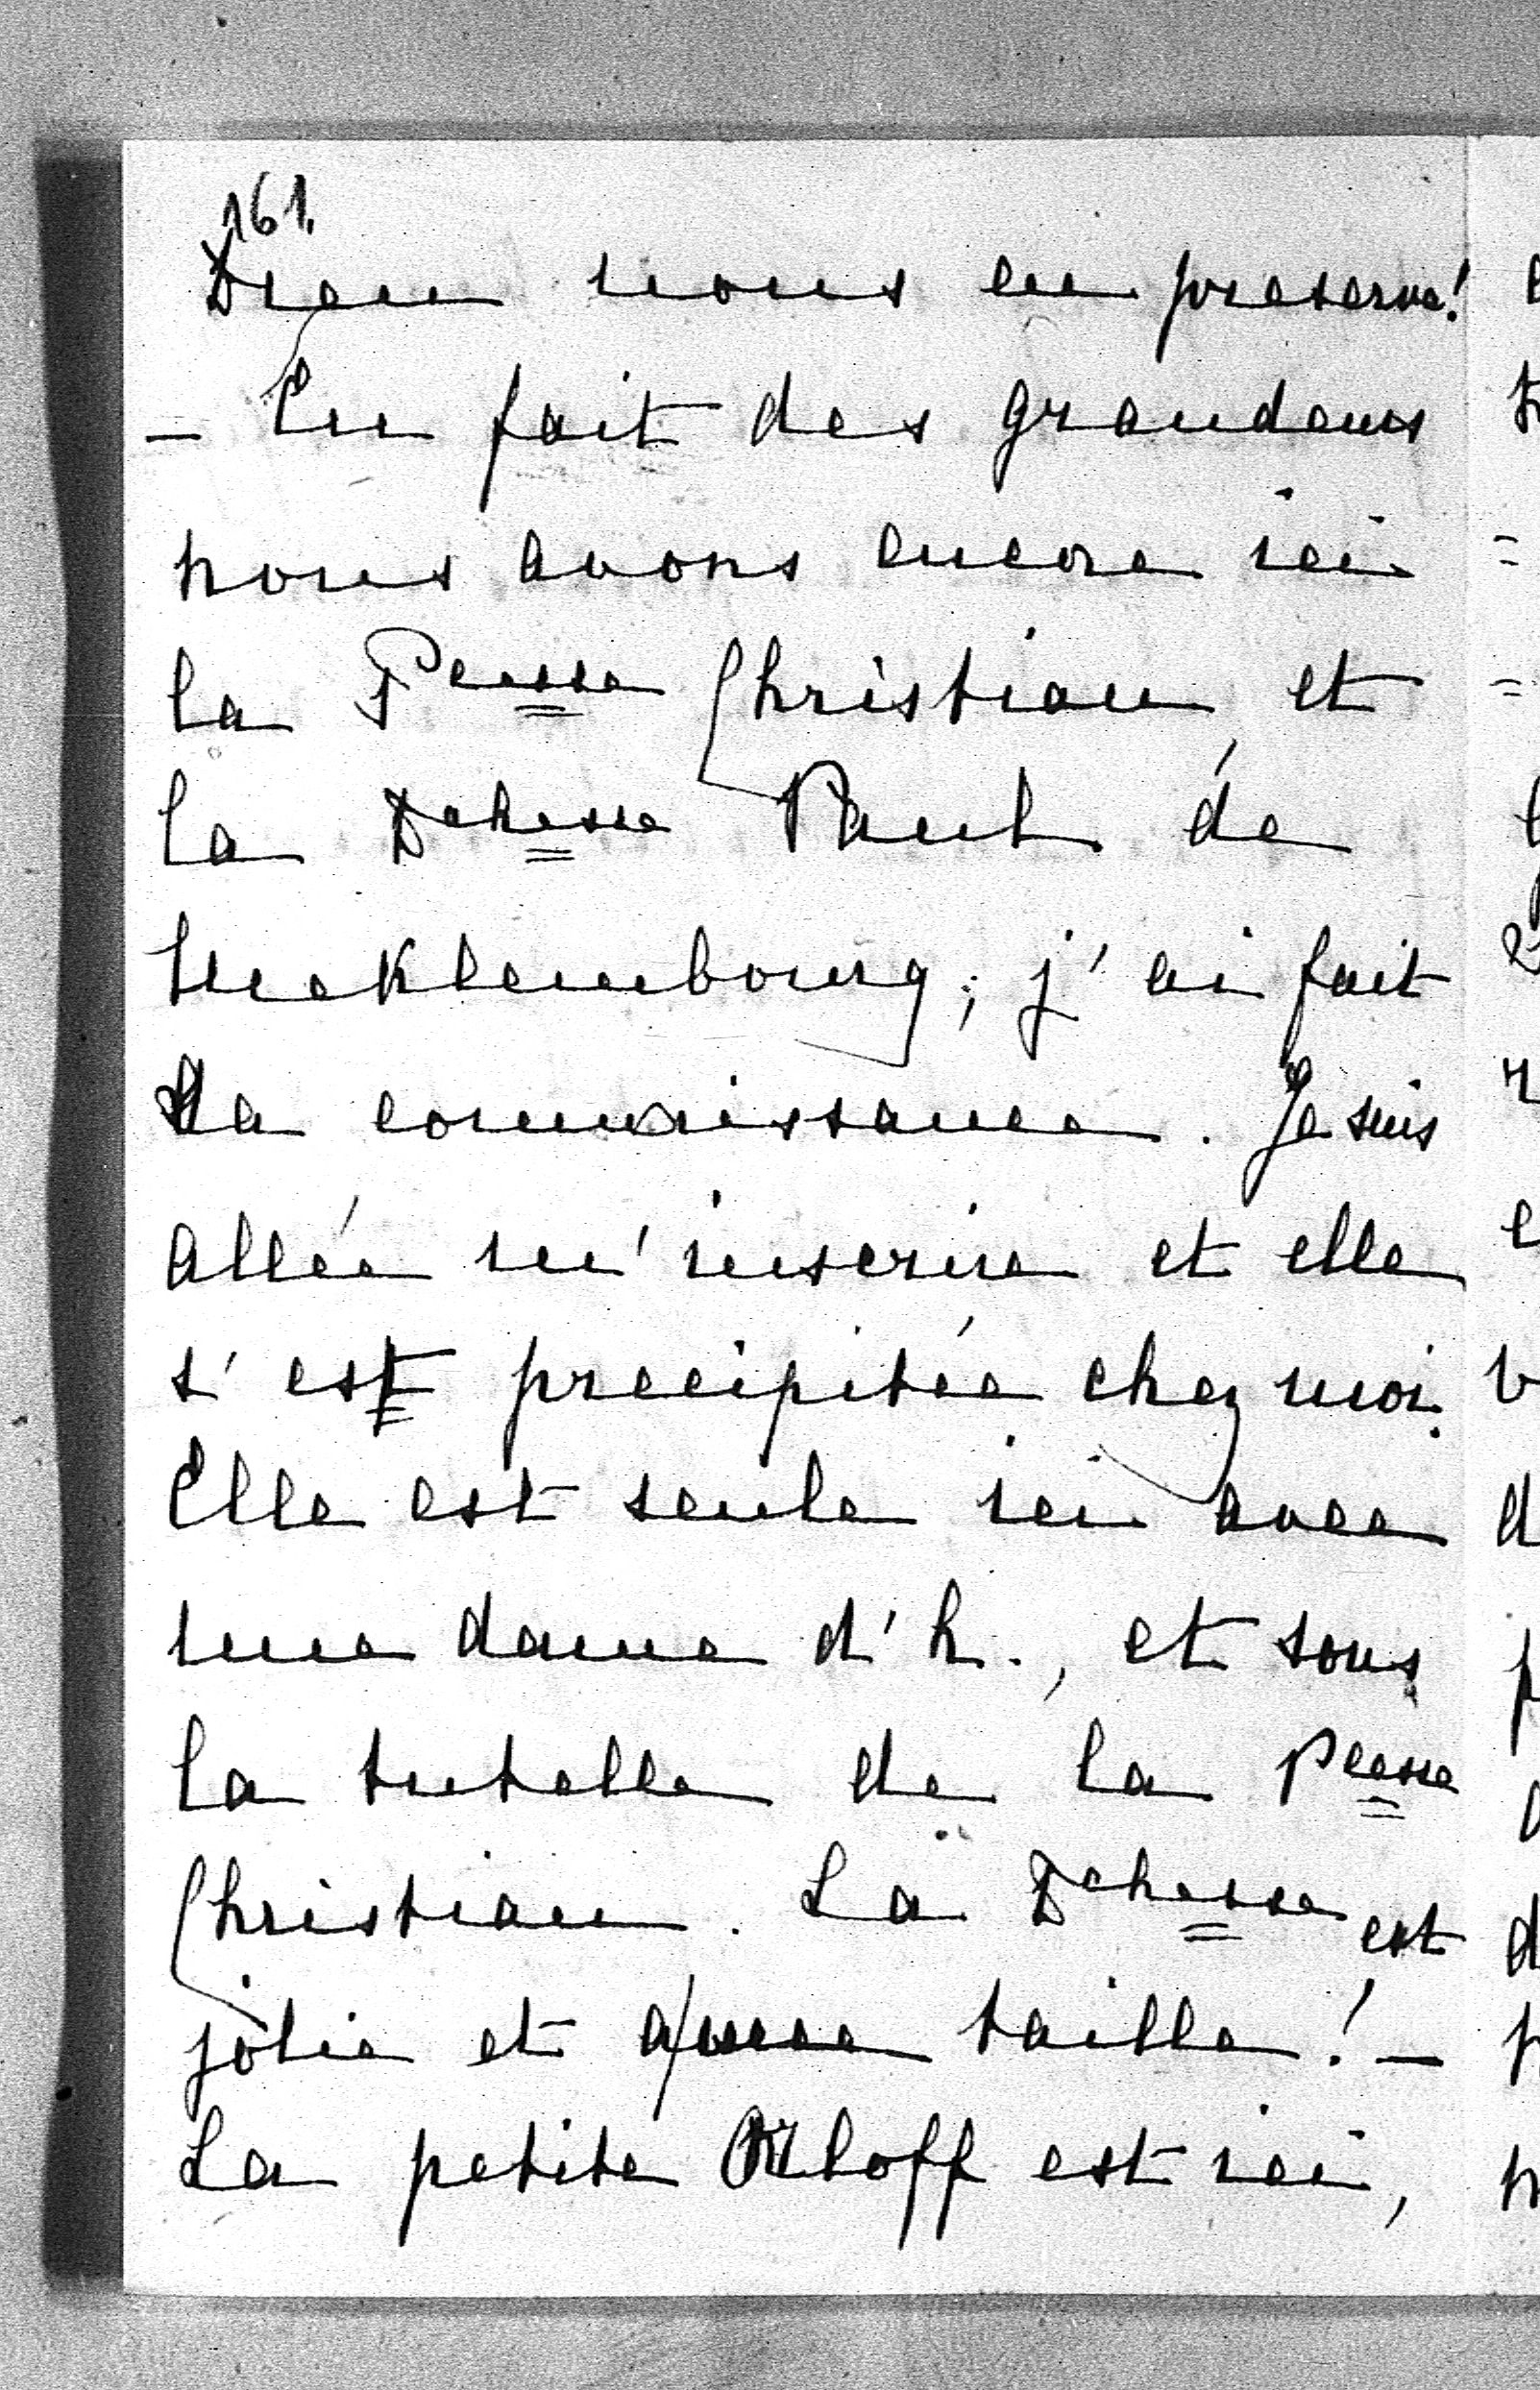 161.
Dieu nous en preserve!
– En fait des grandeurs
nous avons encore ici
la Pcesse Christian et
la Dchesse Paul de
Meklembourg; j'ai fait
sa connaissance. Je suis
allée m'inscrire et elle
s'est precipitée chez moi.
Elle est seule ici avec
une dame d'h., et sous
la tutelle de la Pcesse
Christian. La Dchesse est
jolie et d'une taille! –
La petite Orloff est ici,